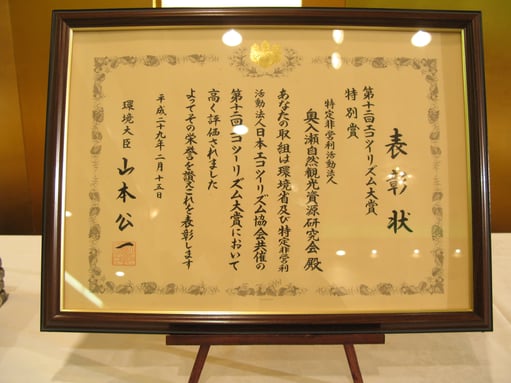 表彰状
第十二回エコツーリズム大賞
特別賞
特定非営利活動法人
奥入瀬自然観光資源研究会 殿
あなたの取組は環境省及び特定非営利
活動法人日本エコツーリズム協会共催の
第十二回エコツーリズム大賞において
高く評価されました
よってその栄誉を讃えこれを表彰します
平成二十九年二月十五日
環境大臣 山本公一